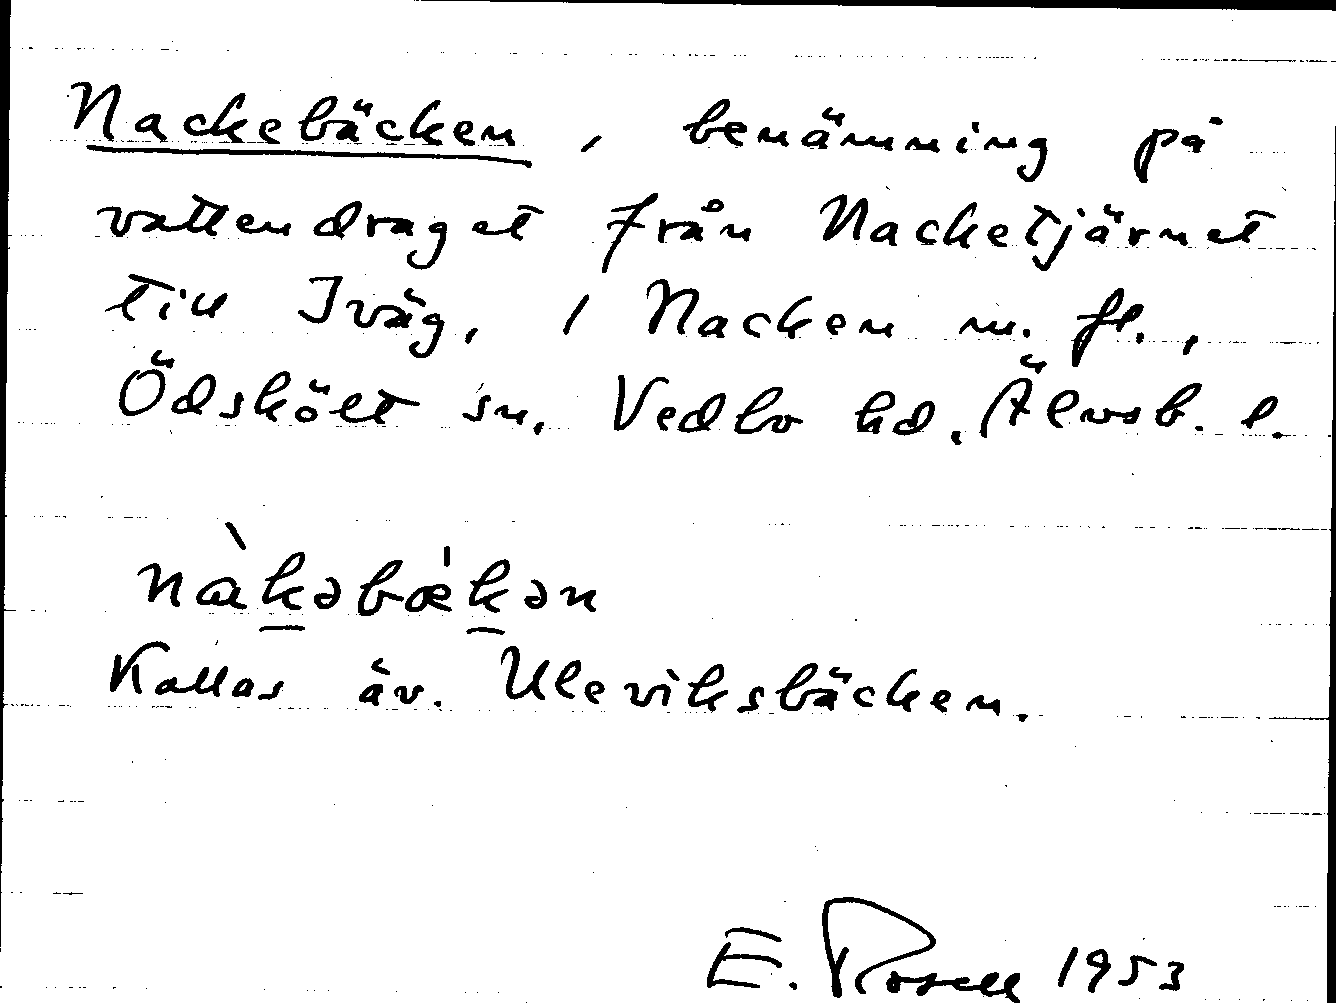 Nackebäcken, benämning på
vattendraget från Nacketjärnet
till Iväg, 1 Nacken m. fl.,
Ödskölt sn. Vedbo hd. Älvsb. l.
nàkəbækən
Kallas äv. Uleviksbäcken.
E. Rosell 1953